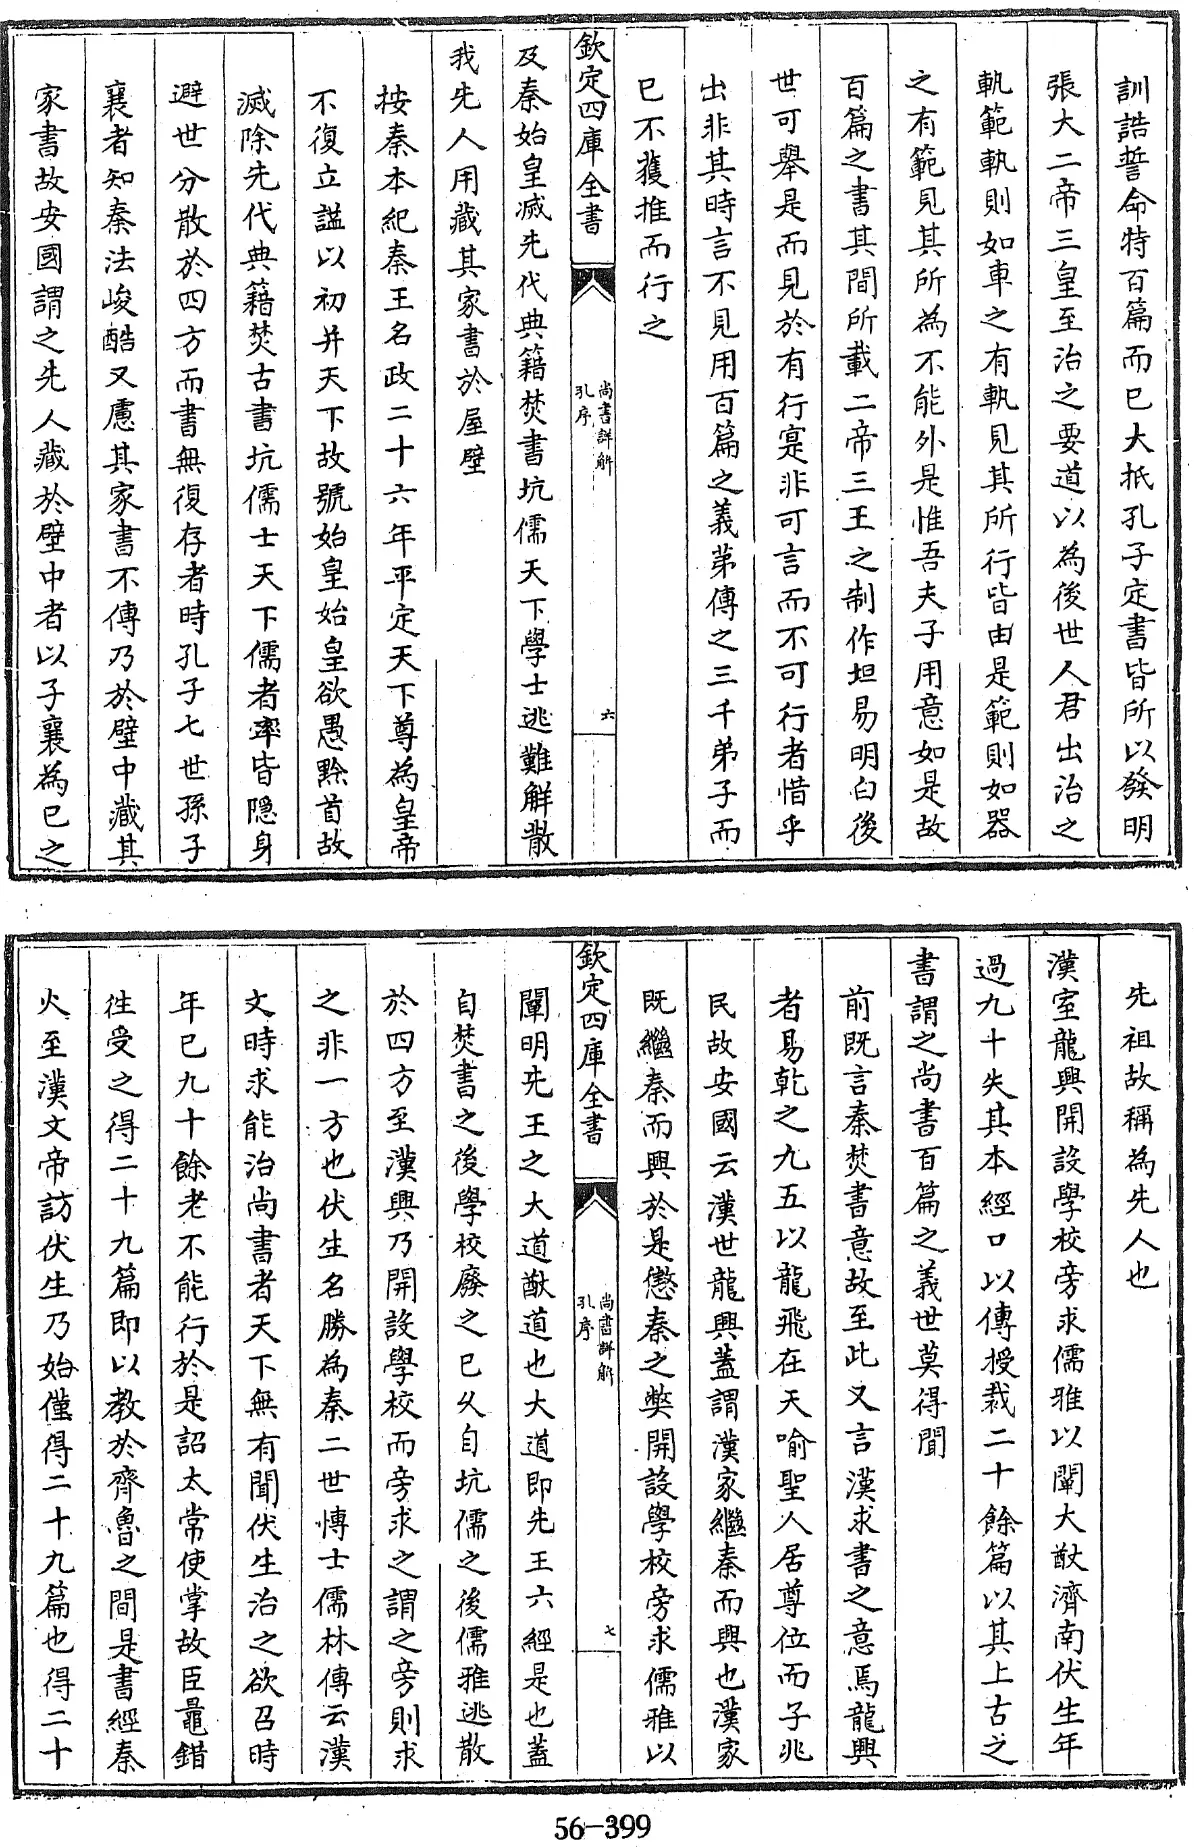 訓誥誓命特百篇而已大抵孔子定書皆所以發明
張大二帝三皇至治之要道以為後世人君出治之
軌範軌則如車之有軌見其所行皆由是範則如器
之有範見其所為不能外是惟吾夫子用意如是故
百篇之書其間所載二帝三王之制作坦易明白後
世可舉是而見於有行寔非可言而不可行者惜乎
出非其時言不見用百篇之義第傳之三千弟子而
已不獲推而行之
欽定四庫全書
尚書詳解
孔序
六
及秦始皇滅先代典籍焚書坑儒天下學士逃難解散
我先人用藏其家書於屋壁
按秦本紀秦王名政二十六年平定天下尊為皇帝
不復立諡以初并天下故號始皇始皇欲愚黔首故
滅除先代典籍焚古書坑儒士天下儒者率皆隱身
避世分散於四方而書無復存者時孔子七世孫子
襄者知秦法峻酷又慮其家書不傳乃於壁中藏其
家書故安國謂之先人藏於壁中者以子襄為已之
先祖故稱為先人也
漢室龍興開設學校旁求儒雅以闡大猷濟南伏生年
過九十失其本經口以傳授裁二十餘篇以其上古之
書謂之尚書百篇之義世莫得聞
前既言秦焚書意故至此又言漢求書之意焉龍興
者易乾之九五以龍飛在天喻聖人居尊位而子兆
民故安國云漢世龍興蓋謂漢家繼秦而興也漢家
既繼秦而興於是懲秦之弊開設學校旁求儒雅以
欽定四庫全書
尚書詳解
孔序
七
闡明先王之大道猷道也大道即先王六經是也蓋
自焚書之後學校廢之已久自坑儒之後儒雅逃散
於四方至漢興乃開設學校而旁求之謂之旁則求
之非一方也伏生名勝為秦二世博士儒林傳云漢
文時求能治尚書者天下無有聞伏生治之欲召時
年已九十餘老不能行於是詔太常使掌故臣鼂錯
徃受之得二十九篇即以教於齊魯之間是書經秦
火至漢文帝訪伏生乃始僅得二十九篇也得二十
56-399